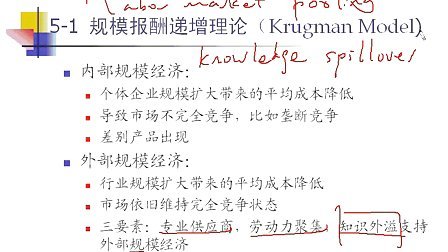 labor market pooling
5-1 规模报酬递增理论（Krugman Model）
knowledge spillover
内部规模经济：
个体企业规模扩大带来的平均成本降低
导致市场不完全竞争，比如垄断竞争
差别产品出现
外部规模经济：
行业规模扩大带来的平均成本降低
市场依旧维持完全竞争状态
三要素：专业供应商，劳动力聚集，知识外溢支持
外部规模经济